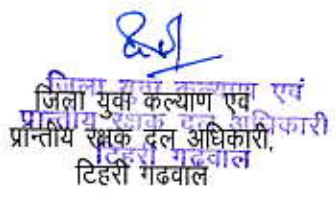 जिला युवा कल्याण एवं
प्रान्तीय रक्षक दल अधिकारी
टिहरी गढ़वाल
जिला युवा कल्याण एवं
प्रान्तीय रक्षक दल अधिकारी,
टिहरी गढवाल